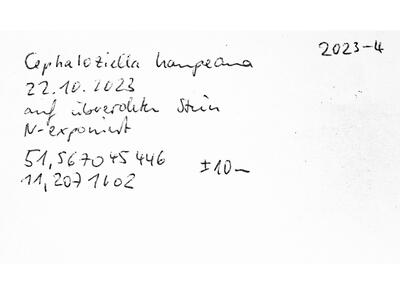 Cephaloziella hampeana
2023-4
22.10.2023
auf übererdetem Stein
N-exponiert
51,567045446
±10m
11,2071602